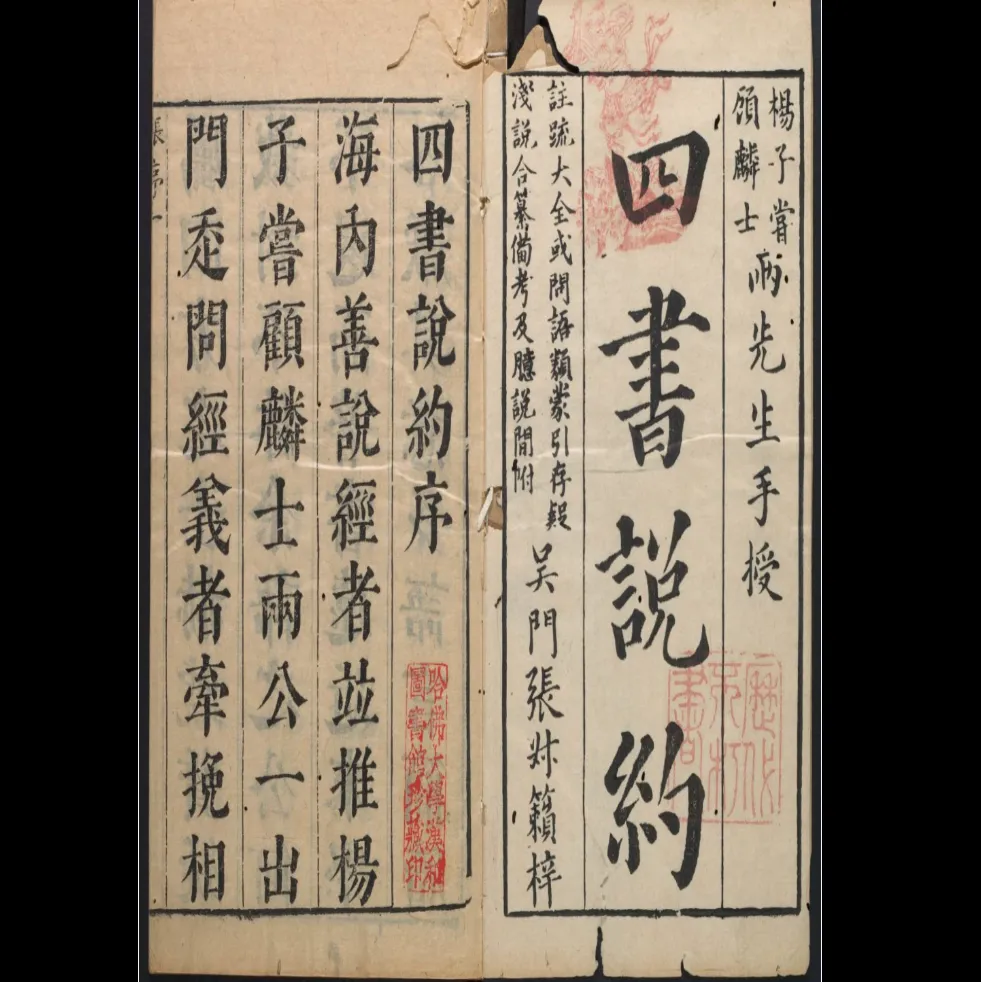 楊子嘗
顧麟士
兩先生手授
四書說約
註疏大全或問語類蒙引存疑
淺說合纂備考及臆說間附
吳門張叔籟梓
四書說約序
哈佛大學漢和
圖書館珍藏印
海內善說經者並推楊
子嘗顧麟士兩公一出
門問經義者牽挽相
張序一